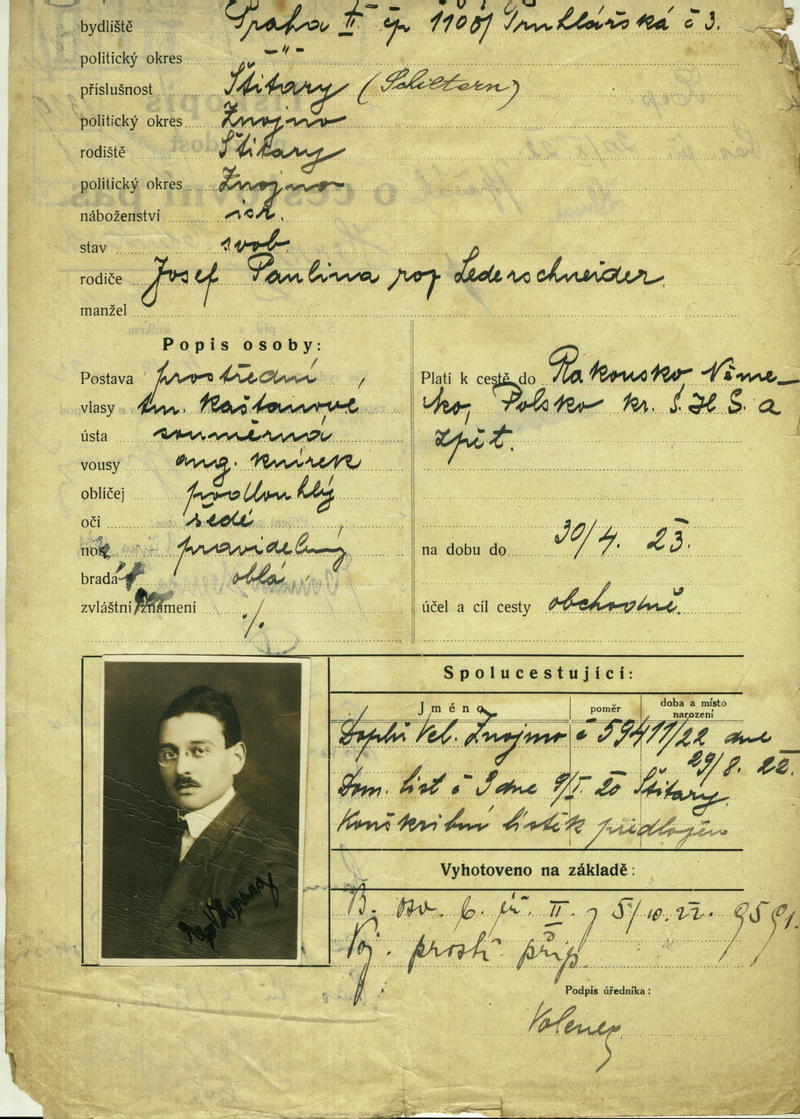 bydliště Praha II čp 1108/ Truhlářská č 3.
politický okres –"–
příslušnost Štítary (Schiltern)
politický okres Znojmo
rodiště Štítary
politický okres Znojmo
náboženství isr.
stav svob
rodiče Josef Paulina roz Lederschneider
manžel
Popis osoby:
Postava prostřední
vlasy tm. kaštanové
ústa souměrná
vousy ang. knírek
obličej podlouhlý
oči šedé
nos pravidelný
brada oblá
zvláštní znamení ./.
Platí k cestě do Rakousko, Něme-
cko, Polsko kr. S.H.S. a
zpět.
na dobu do 30/4. 23.
účel a cíl cesty obchodně.
Spolucestující:
Jméno poměr doba a místo narození
Vel. Znojmo č 59411/22 dne
29/8. 22.
Dom. list č 9 dne 9/I. 20 Štítary
Konskribní lístek předložen
Vyhotoveno na základě:
B. osv. II. 5/10.22. 9591.
Voj. prostř. příp.
Podpis úředníka: